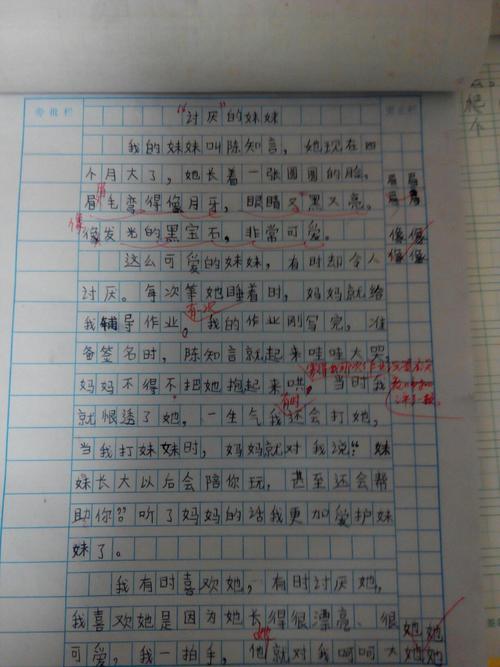 “讨厌”的妹妹
我的妹妹叫陈知言，她现在四
个月大了，她长着一张圆圆的脸，
眉毛弯得像月牙，眼睛又黑又亮，
像发光的黑宝石，非常可爱。
这么可爱的妹妹，有时却令人
讨厌。每次等她睡着时，妈妈就给
有一次
我辅导作业。我的作业刚写完，准
备签名时，陈知言就起来哇哇大哭，
妈妈不得不把她抱起来哄。当时我
有时
就恨透了她，一生气我还会打她，
当我打妹妹时，妈妈就对我说：“妹
妹长大以后会陪你玩，甚至还会帮
助你”。听了妈妈的话我更加爱护妹
妹了。
我有时喜欢她，有时讨厌她，
我喜欢她是因为她长得很漂亮、很
她
可爱，我一拍手，他就对我呵呵大
眉眉
眉眉
像像
像像
她她
她她